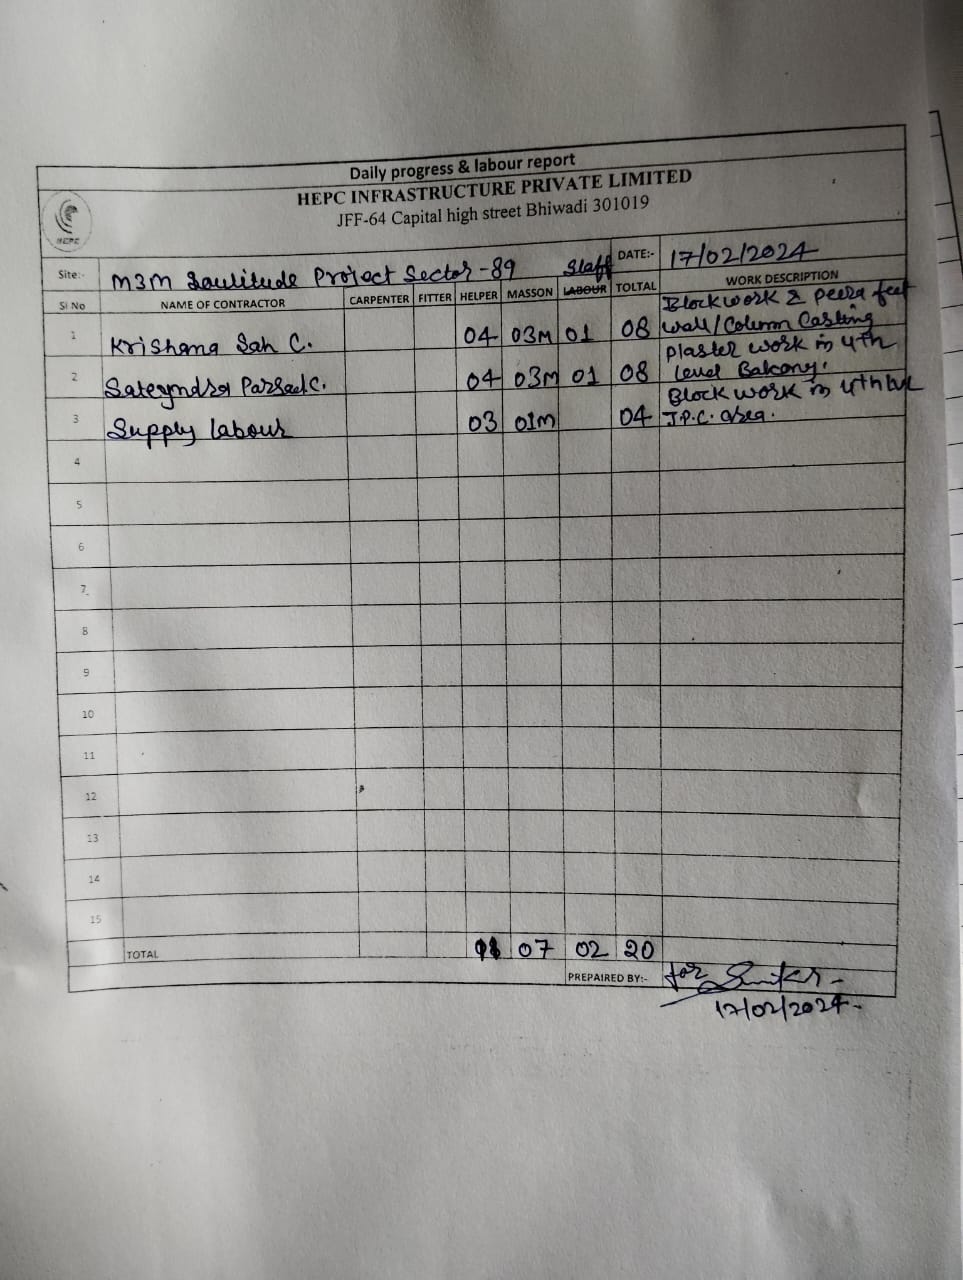 Daily progress & labour report
HEPC INFRASTRUCTURE PRIVATE LIMITED
JFF-64 Capital high street Bhiwadi 301019
HEPC
Site:- M3M Soulitude Project Sector-89 Staff DATE:- 17/02/2024
Sl No NAME OF CONTRACTOR CARPENTER FITTER HELPER MASSON LABOUR TOLTAL WORK DESCRIPTION
1 Krishana Sah C. 04 03M 01 08 Block work & peera feet
wall/Column Casting
2 Sateyndra Parsad C. 04 03M 01 08 plaster work in 4th
level Balcony.
3 Supply labour 03 01M 04 Block work in 4th lvl
J.P.C. area.
4
5
6
7
8
9
10
11
12
13
14
15
TOTAL 11 07 02 20
PREPAIRED BY:- for
17/02/2024